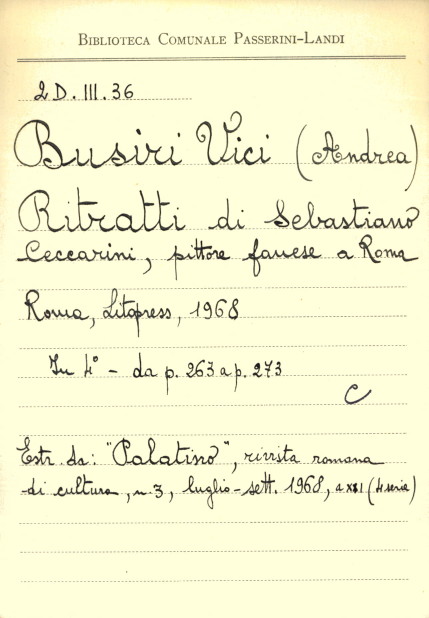 BIBLIOTECA COMUNALE PASSERINI-LANDI
2 D. III. 36
Busiri Vici (Andrea)
Ritratti di Sebastiano
Ceccarini, pittore fanese a Roma
Roma, Litopress, 1968
In 4° - da p. 263 a p. 273
C
Estr. da: "Palatino", rivista romana
di cultura, n. 3, luglio-sett. 1968, a XII (4 serie)